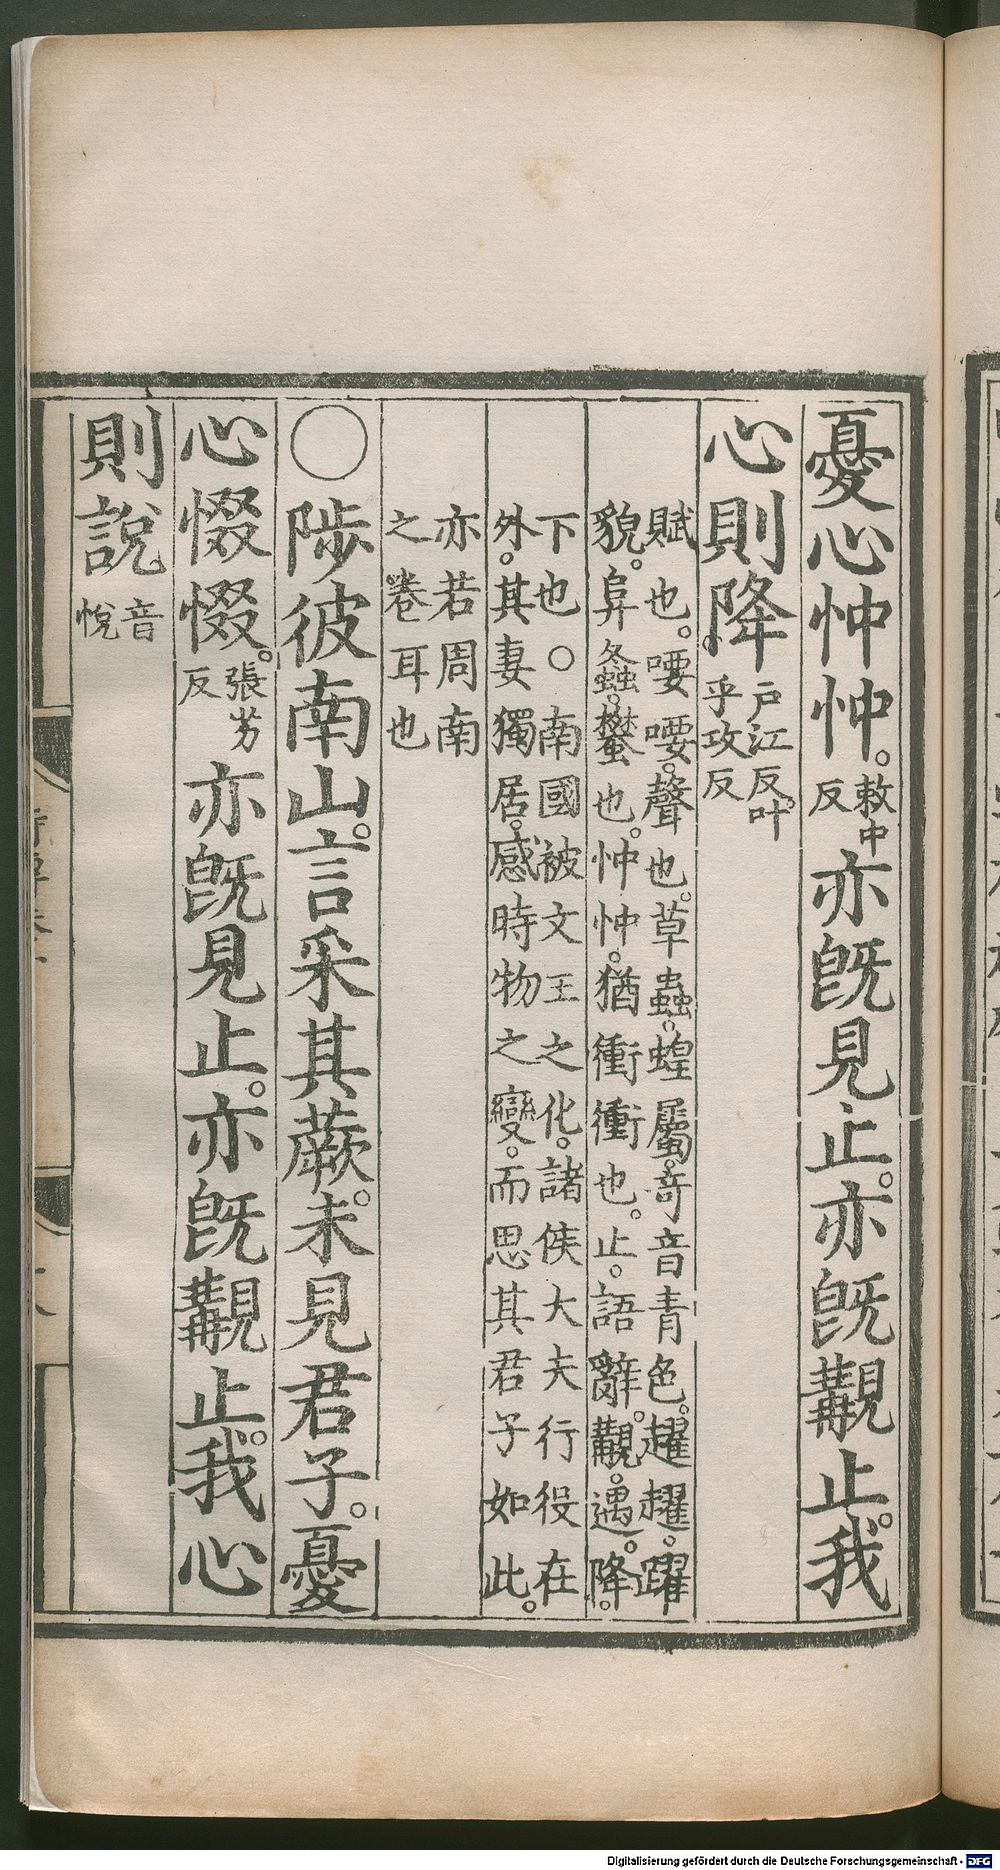 憂心忡忡。敕中反亦旣見止。亦旣覯止。我
心則降。戶江反。叶乎攻反
賦也。喓喓。聲也。草蟲。蝗屬。竒音青色。趯趯。躍
貌。阜螽。蠜也。忡忡。猶衝衝也。止。語辭。覯。遇。降。
下也。○南國被文王之化。諸侯大夫行役在
外。其妻獨居。感時物之變。而思其君子如此。
亦若周南
之卷耳也
○陟彼南山。言采其蕨。未見君子。憂
心惙惙。張劣反亦旣見止。亦旣覯止。我心
則說音悅
Digitalisierung gefördert durch die Deutsche Forschungsgemeinschaft - DFG